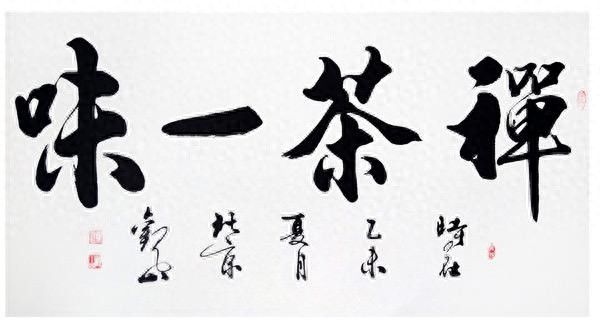 禪茶一味
時在乙未夏月北京